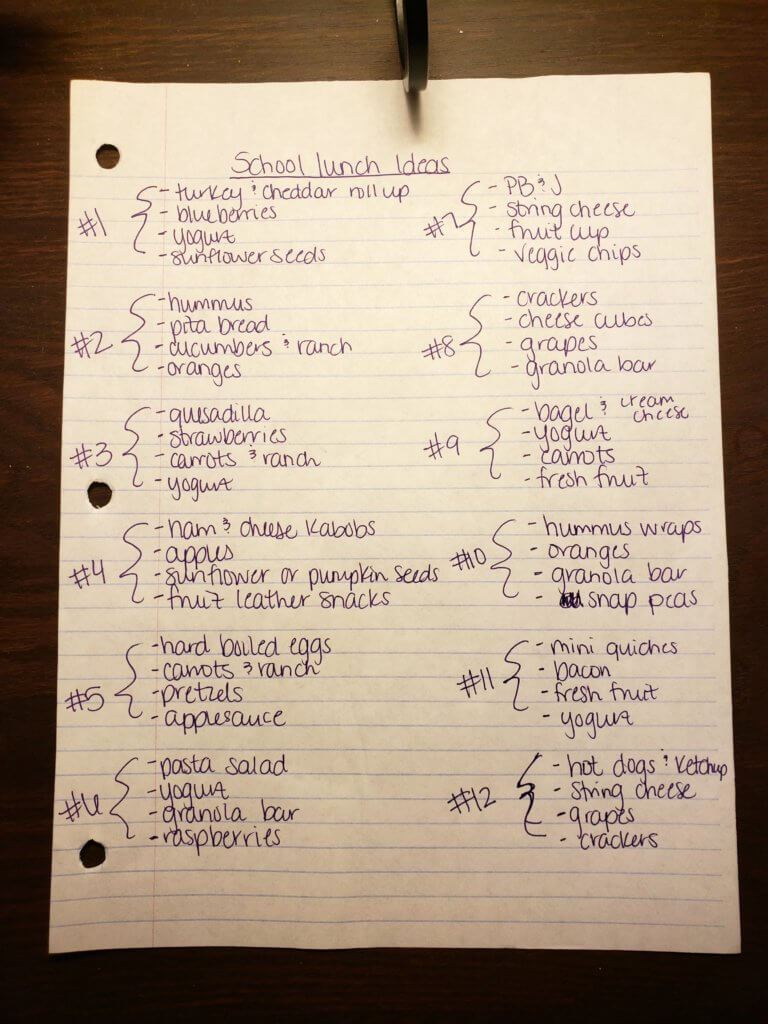 School lunch Ideas
#1
- turkey & cheddar roll up
- blueberries
- yogurt
- sunflower seeds
#2
- hummus
- pita bread
- cucumbers & ranch
- oranges
#3
- quesadilla
- strawberries
- carrots & ranch
- yogurt
#4
- ham & cheese kabobs
- apples
- sunflower or pumpkin seeds
- fruit leather snacks
#5
- hard boiled eggs
- carrots & ranch
- pretzels
- applesauce
#6
- pasta salad
- yogurt
- granola bar
- raspberries
#7
- PB & J
- string cheese
- fruit cup
- veggie chips
#8
- crackers
- cheese cubes
- grapes
- granola bar
#9
- bagel & cream cheese
- yogurt
- carrots
- fresh fruit
#10
- hummus wraps
- oranges
- granola bar
- snap peas
#11
- mini quiches
- bacon
- fresh fruit
- yogurt
#12
- hot dogs & ketchup
- string cheese
- grapes
- crackers